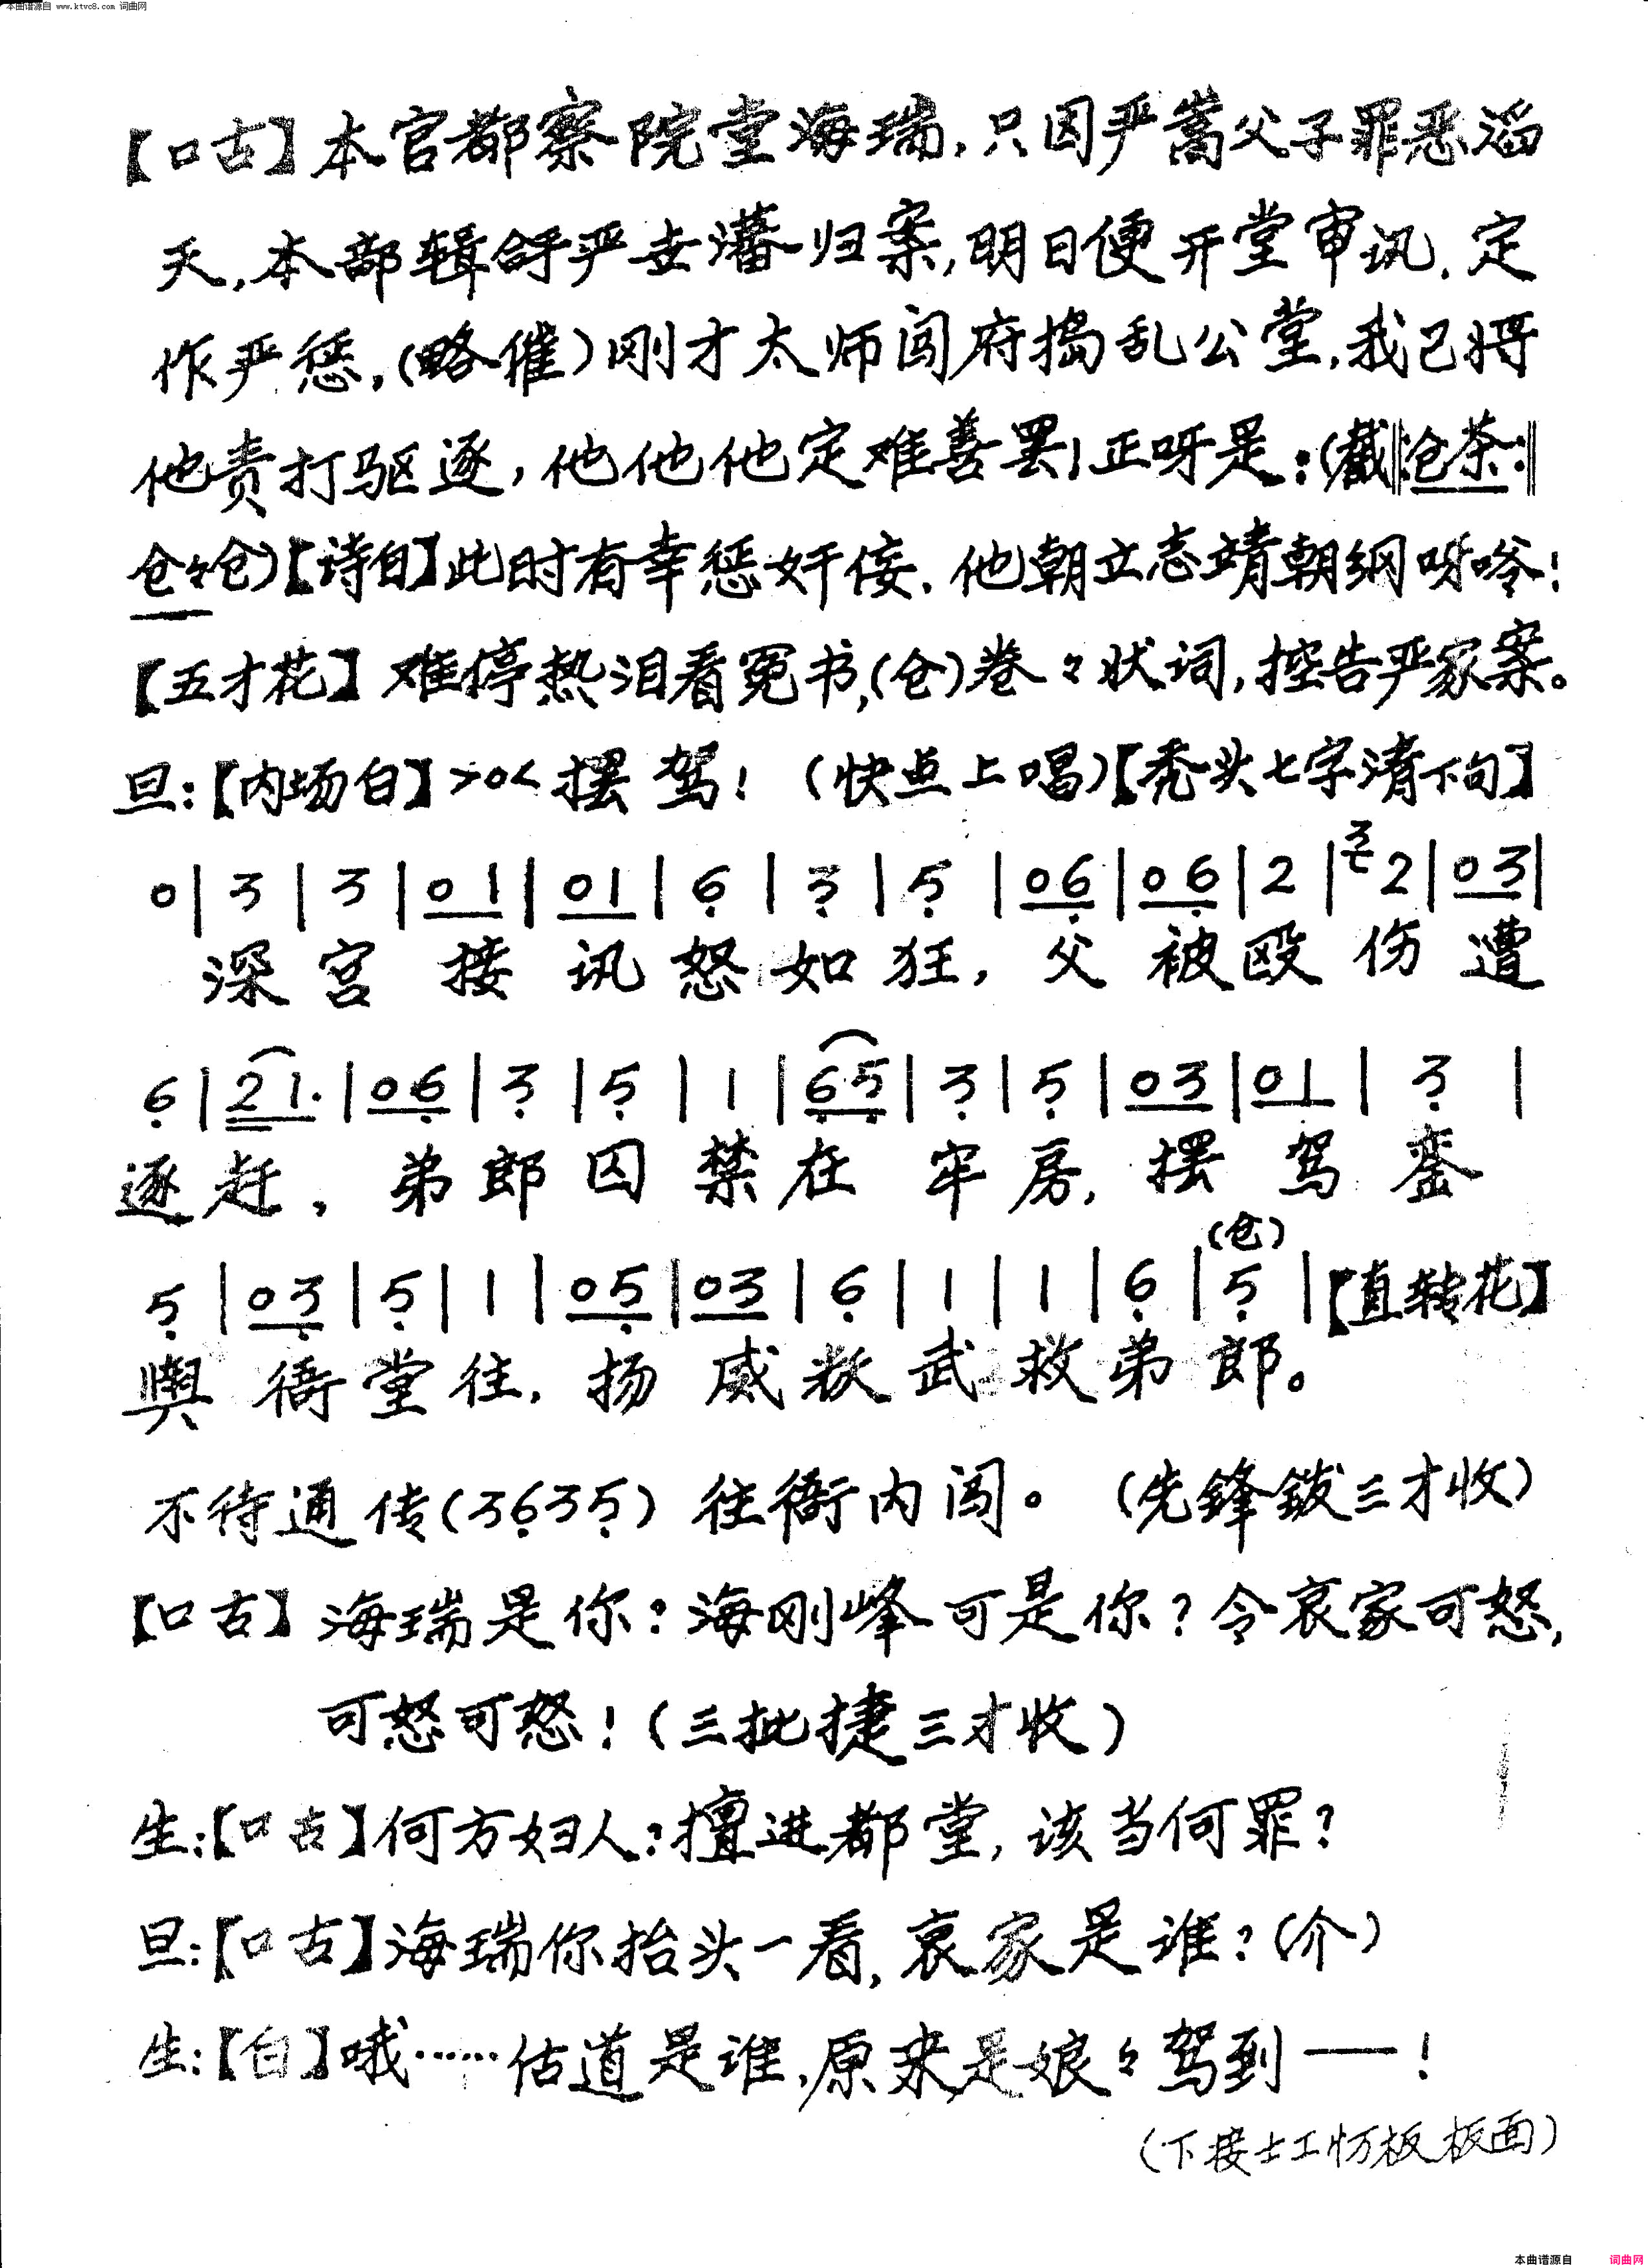 本曲谱源自 www.ktvc8.com 词曲网
【口古】本官都察院堂海瑞,只因严嵩父子罪恶滔
天,本部辑拿严世藩归案,明日便开堂审讯,定
作严惩,(略催)刚才太师闯府捣乱公堂,我已将
他责打驱逐,他他他定难善罢!正呀是:(截‖:仓茶:‖
仓々仓)【诗白】此时有幸惩奸佞,他朝立志靖朝纲呀嗱!
【五才花】难停热泪看冤书,(仓)卷々状词,控告严家案。
旦:【内场白】>0<摆驾!(快点上唱)【秃头七字清下句】
0|3|3|01|01|6̣|3̣|5̣|06̣|06̣|2|3 2|03|
深宫接讯怒如狂,父被殴伤遭
6̣|21.|06̣|3̣|5̣|1|6̣5̣|3̣|5̣|03|01|3̣|
逐赶,弟郎囚禁在牢房,摆驾銮
(仓)
5̣|03̣|5̣|1|05̣|03|6̣|1|1|6̣|5̣|【直转花】
舆衙堂往,扬威耀武救弟郎。
不待通传(36̣35̣)往衙内闯。(先鋒鈸三才收)
【口古】海瑞是你?海刚峰可是你?令哀家可怒,
可怒可怒!(三批捷三才收)
生:【口古】何方妇人?擅进都堂,该当何罪?
旦:【口古】海瑞你抬头一看,哀家是谁?(介)
生:【白】哦……估道是谁,原来是娘々驾到——!
(下接士工慢板板面)
本曲谱源自 词曲网